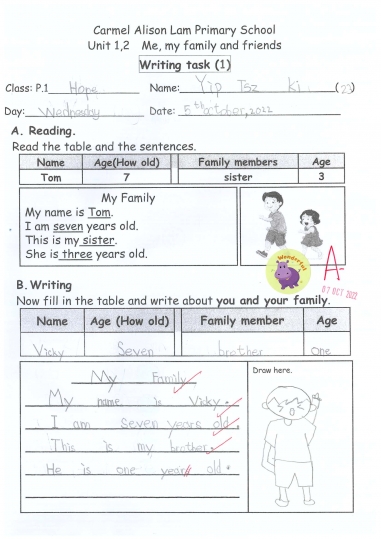 Carmel Alison Lam Primary School
Unit 1,2 Me, my family and friends
Writing task (1)
Class: P.1 Hope Name: Yip Tsz Ki (23)
Day: Wednesday Date: 5th October, 2022
A. Reading.
Read the table and the sentences.
Name Age(How old) Family members Age
Tom 7 sister 3
My Family
My name is Tom.
I am seven years old.
This is my sister.
She is three years old.
Wonderful
A-
07 OCT 2022
B. Writing
Now fill in the table and write about you and your family.
Name Age (How old) Family member Age
Vicky Seven brother one
My Family
Draw here.
My name is Vicky.
I am Seven years old.
This is my brother.
He is one years old.